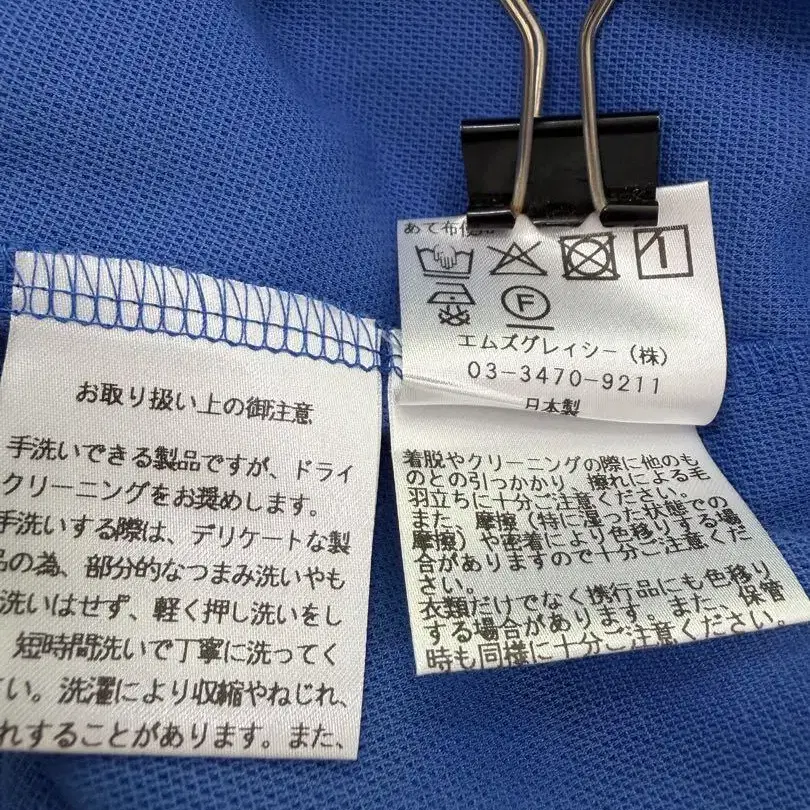 お取り扱い上の御注意
手洗いできる製品ですが、ドライ
クリーニングをお奨めします。
手洗いする際は、デリケートな製
品の為、部分的なつまみ洗いやも
洗いはせず、軽く押し洗いをし
短時間洗いで丁寧に洗ってく
い。洗濯により収縮やねじれ、
れすることがあります。また、
あて布使
F
エムズグレイシー(株)
03-3470-9211
日本製
着脱やクリーニングの際に他のも
のとの引っかかり、擦れによる毛
羽立ちに十分ご注意ください。
また、摩擦(特に湿った状態での
摩擦)や密着により色移りする場
合がありますので十分ご注意くだ
さい。
衣類だけでなく携行品にも色移り
する場合があります。また、保管
時も同様に十分ご注意ください。